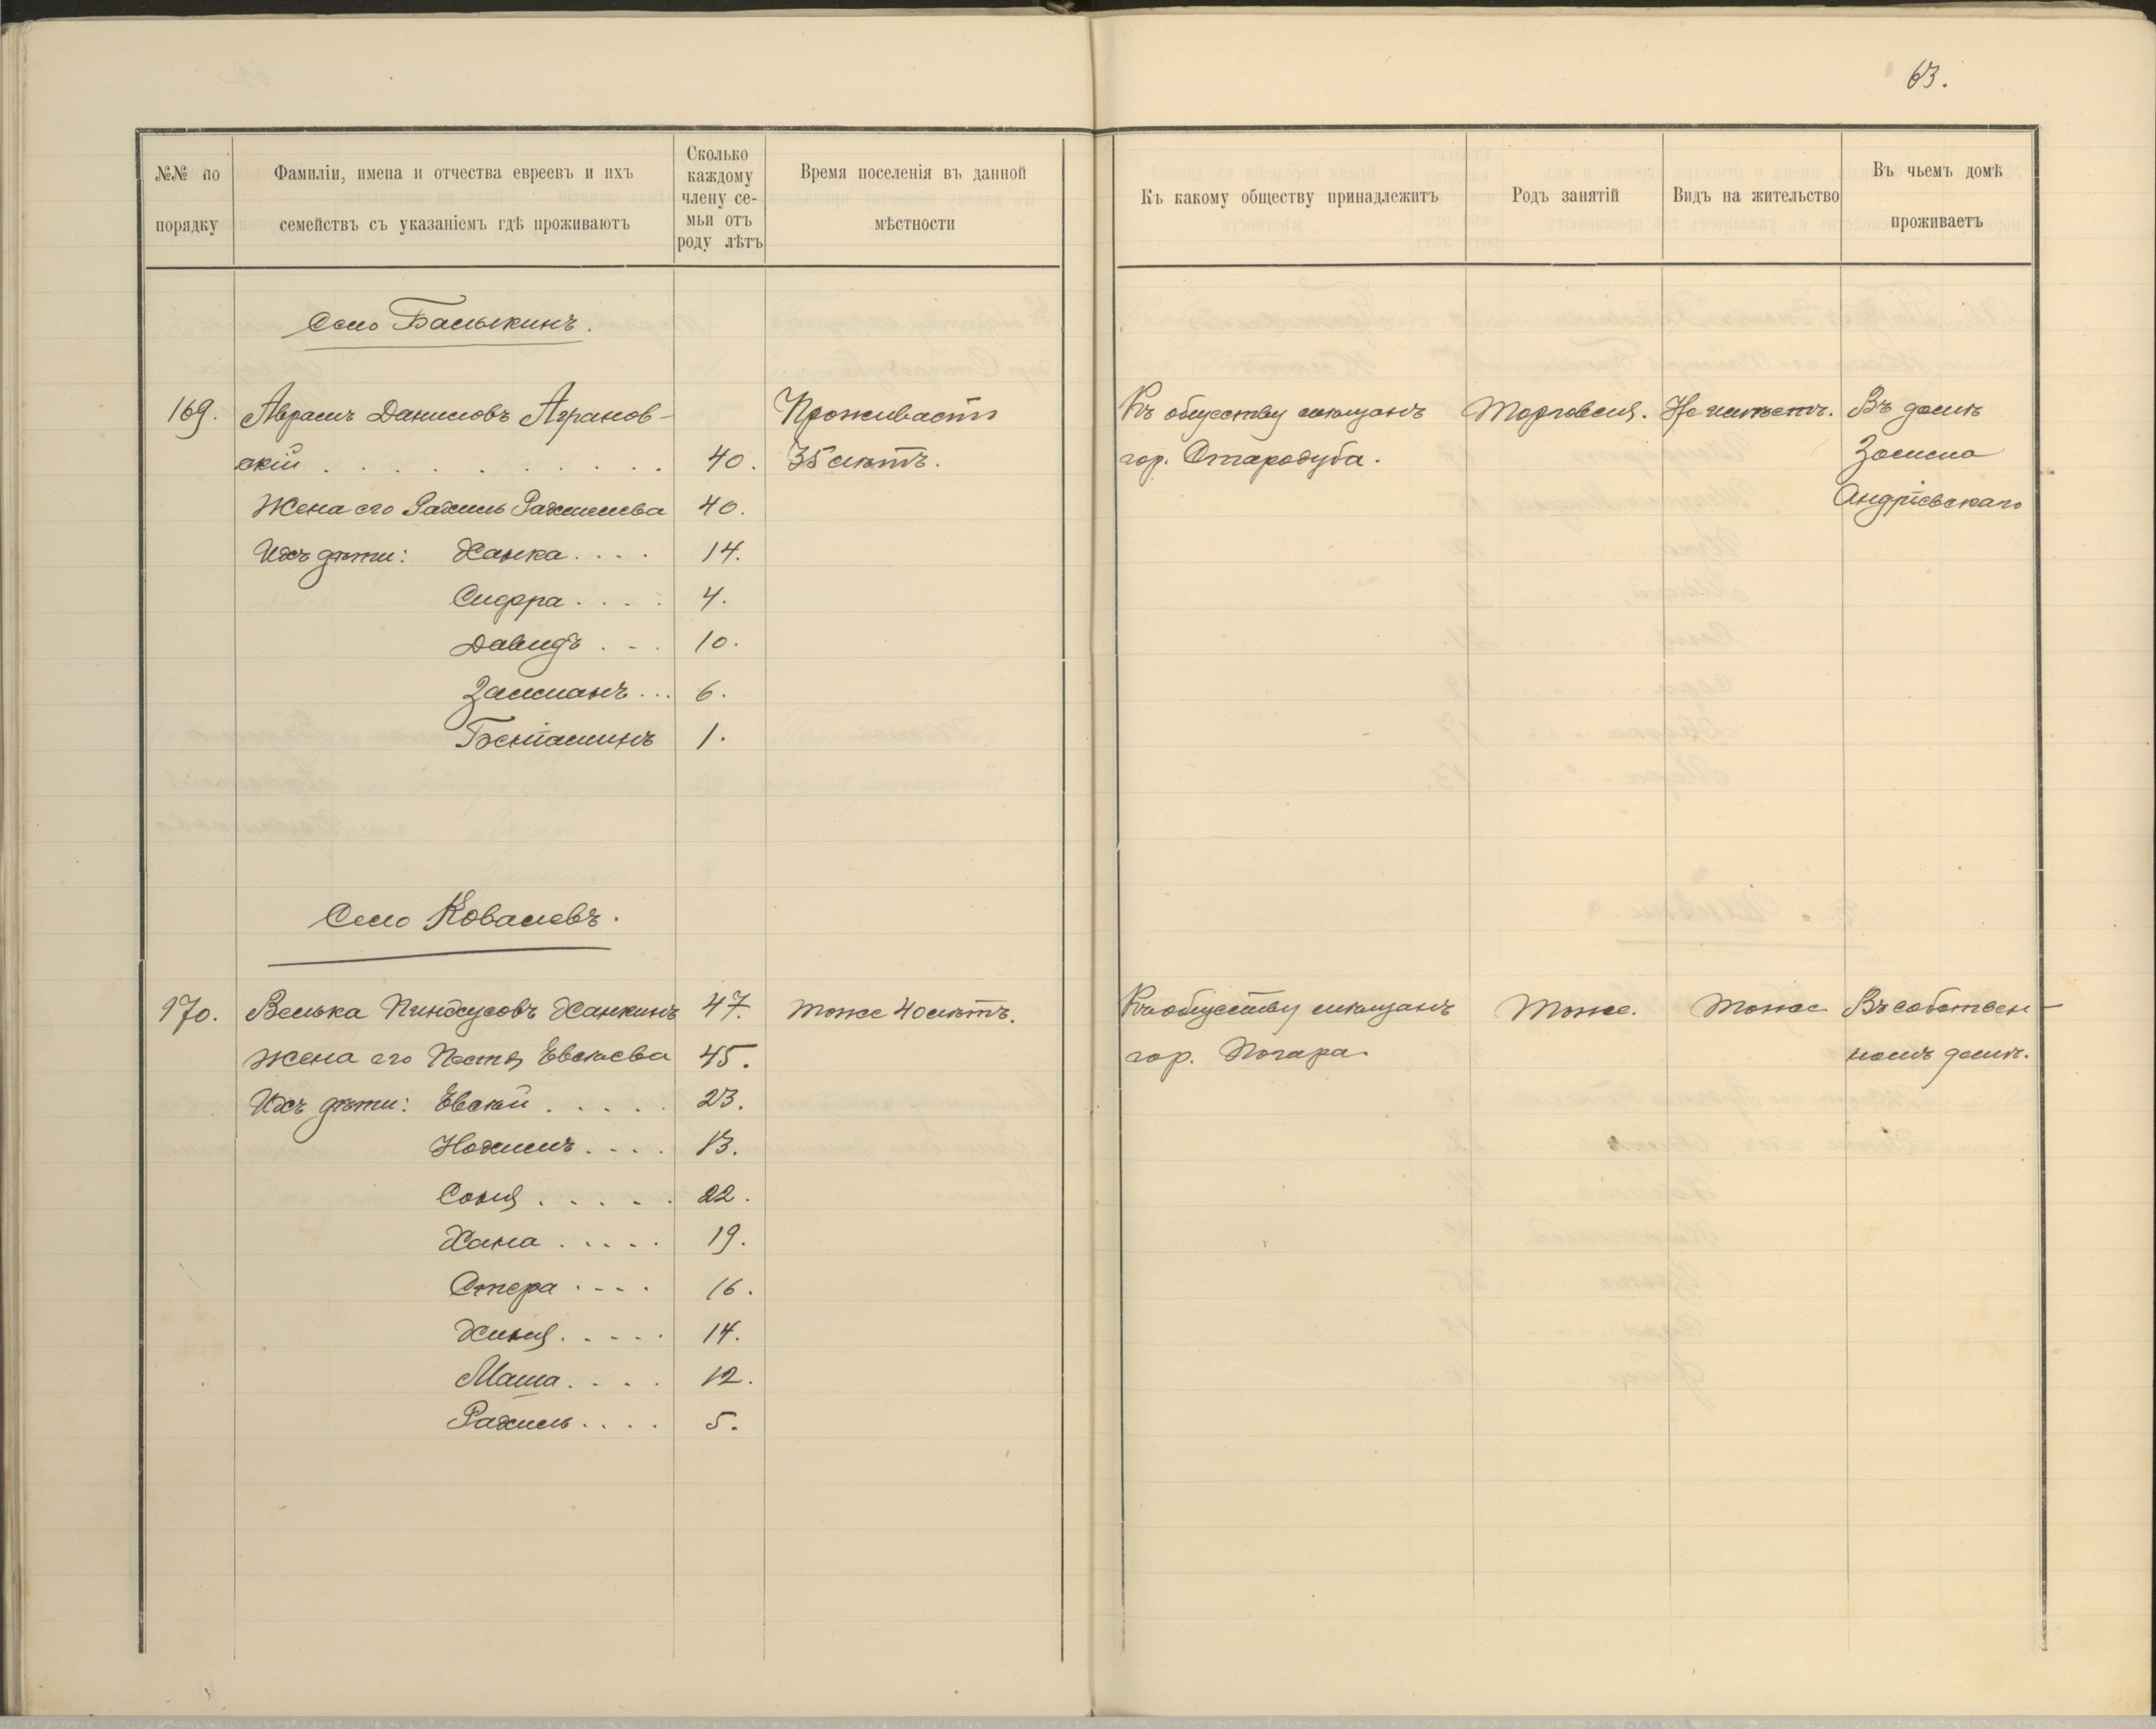 63.
№№ по
порядку
Фамиліи, имена и отчества евреевъ и ихъ
семействъ съ указаніемъ гдѣ проживаютъ
Сколько
каждому
члену се-
мьи отъ
роду лѣтъ
Время поселенія въ данной
мѣстности
Къ какому обществу принадлежитъ
Родъ занятій
Видъ на жительство
Въ чьемъ домѣ
проживаетъ
Село Балыкинъ.
169. Аврамъ Даниловъ Агранов- Проживаетъ Къ обществу мѣщанъ Торговля. Не имѣетъ. Въ домѣ
скій . . . . . . . . . 40. 35 лѣтъ. гор. Стародуба. Зосима
Андріевскаго
Жена его Рахиль Рахмилева 40.
Ихъ дѣти: Ханка . . . . 14.
Сифра . . . . 4.
Давидъ . - . 10.
Залманъ . . . 6.
Беніаминъ 1.
Село Ковалевъ.
170. Велька Пинхусовъ Ханкинъ 47. тоже 40 лѣтъ. Къ обществу мѣщанъ Тоже. Тоже Въ собствен-
Жена его Песта Евсѣева 45. гор. Погара. номъ домѣ.
Ихъ дѣти: Евсѣй . . . . . 23.
Нохимъ . . . . 13.
Соня . . . . . 22.
Хана . . . . . 19.
Стера . - - . 16.
Хиня . . . . . 14.
Маша . . . . 12.
Рахиль . . . . 5.